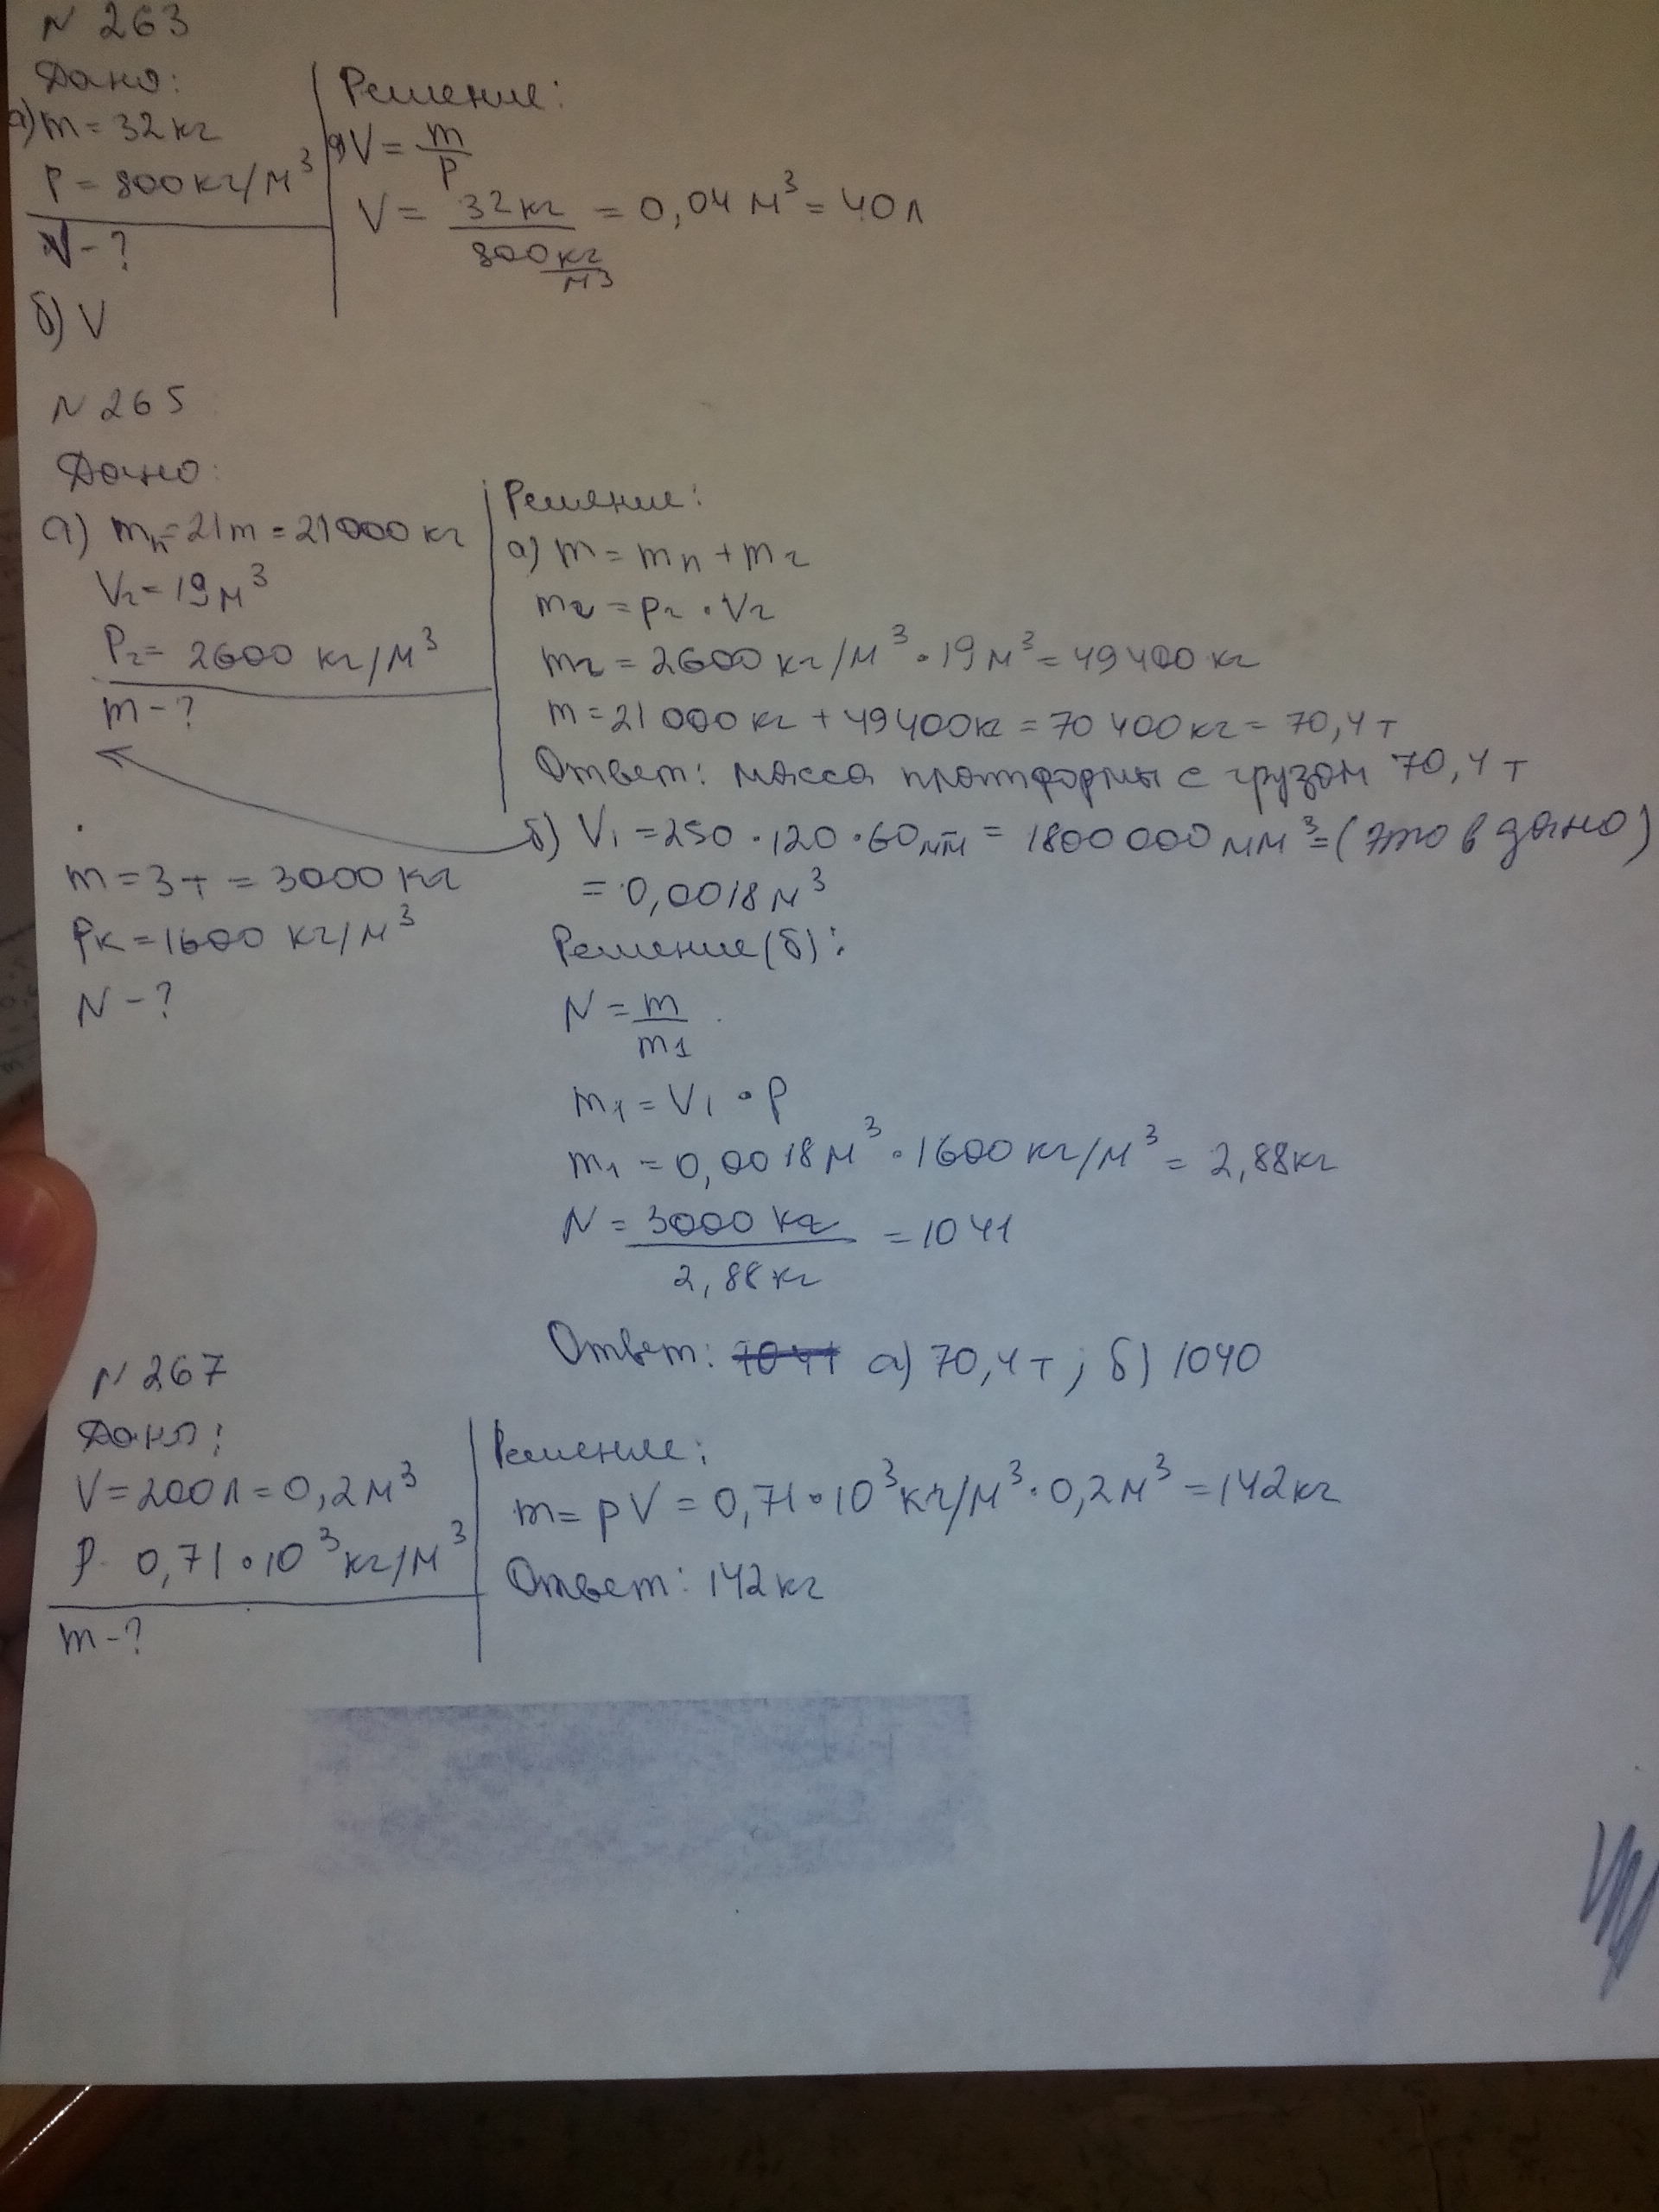 N 263
Дано:
а) m = 32 кг
ρ = 800 кг/м³
V - ?
б) V
Решение:
а) V = m/ρ
V = 32 кг / 800 кг/м³ = 0,04 м³ = 40 л
N 265
Дано:
а) mп = 21 т = 21000 кг
Vг = 19 м³
ρг = 2600 кг/м³
m - ?
Решение:
а) m = mп + mг
mг = ρг · Vг
mг = 2600 кг/м³ · 19 м³ = 49400 кг
m = 21 000 кг + 49400 кг = 70 400 кг = 70,4 т
Ответ: масса платформы с грузом 70,4 т
б) V₁ = 250 · 120 · 60 мм = 1800 000 мм³ = (это в дано)
= 0,0018 м³
m = 3 т = 3000 кг
ρк = 1600 кг/м³
N - ?
Решение (б):
N = m/m₁
m₁ = V₁ · ρ
m₁ = 0,0018 м³ · 1600 кг/м³ = 2,88 кг
N = 3000 кг / 2,88 кг = 1041
Ответ: а) 70,4 т ; б) 1040
N 267
Дано:
V = 200 л = 0,2 м³
ρ - 0,71 · 10³ кг/м³
m - ?
Решение:
m = ρV = 0,71 · 10³ кг/м³ · 0,2 м³ = 142 кг
Ответ: 142 кг